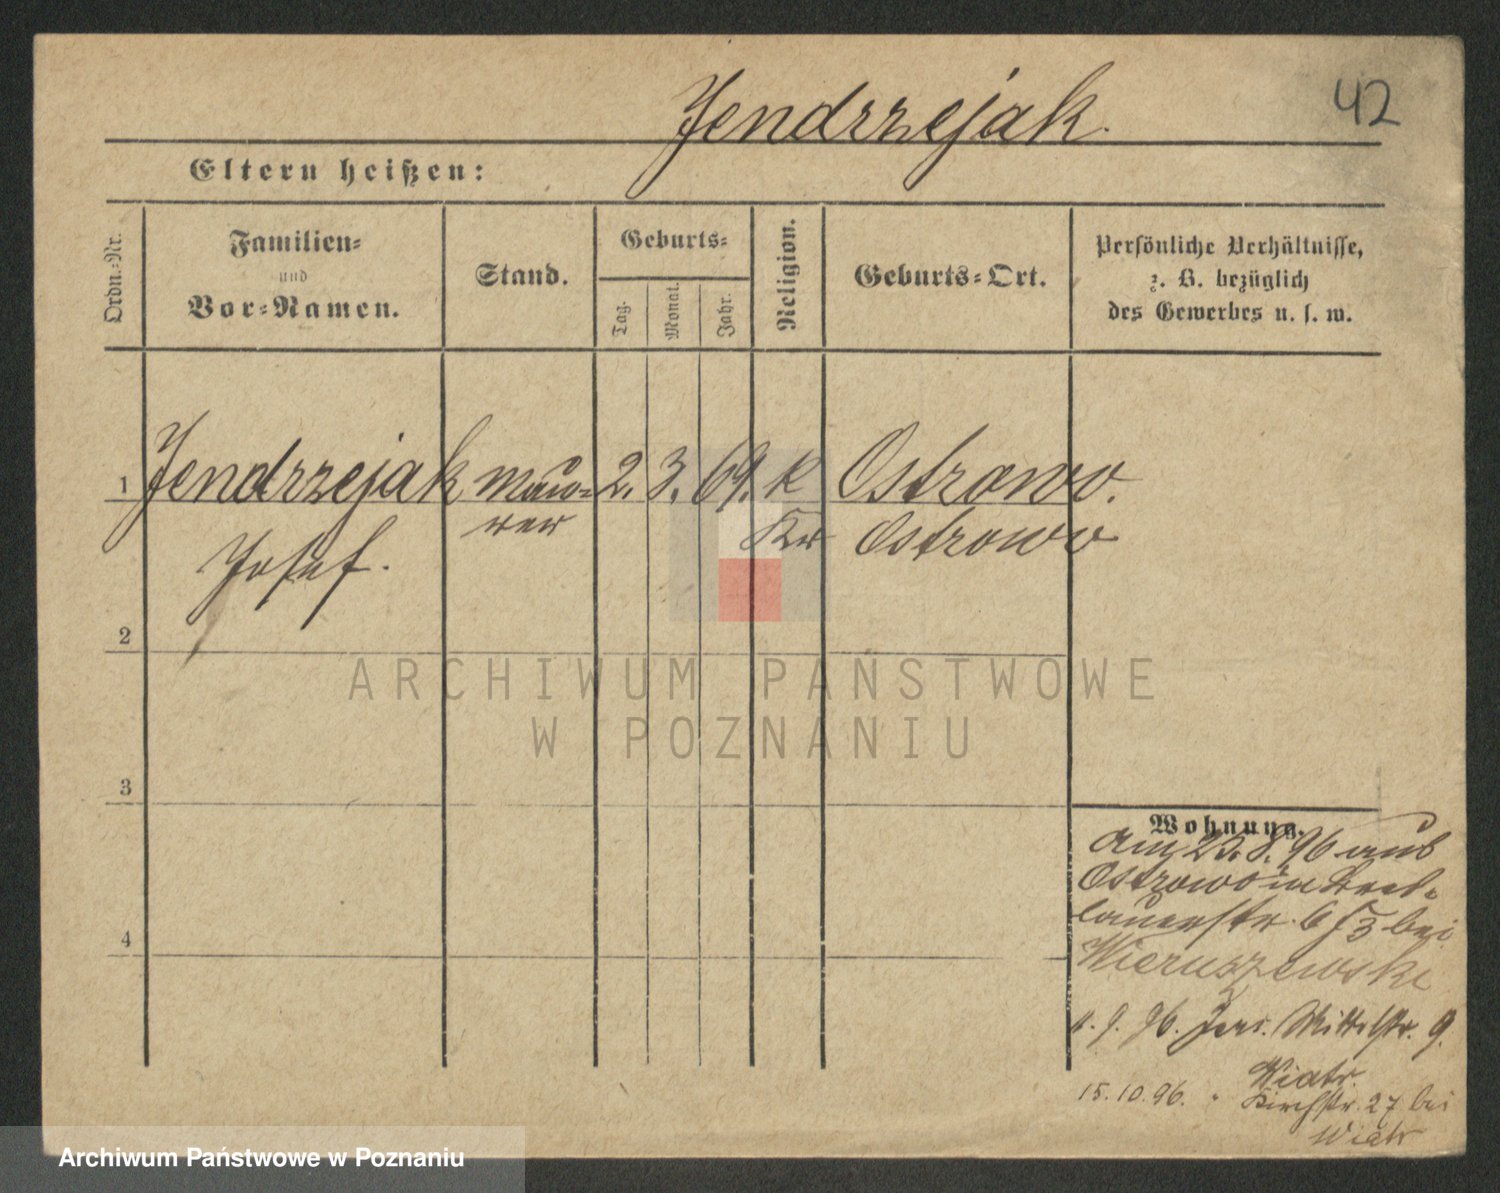 42
Jendrzejak.
Eltern heißen:
Ordn.=Nr.
Familien=
und
Vor=Namen.
Stand.
Geburts=
Tag.
Monat.
Jahr.
Religion.
Geburts=Ort.
Persönliche Verhältnisse,
z. B. bezüglich
des Gewerbes u. s. w.
1 Jendrzejak Mau= 2. 3. 69. K Ostrowo.
rer Kr Ostrowo
Josef.
2
3
4
Wohnung.
Am 8. 96 aus
Ostrowo in Bres=
lauerstr. 6 bei
Wieruszewski
9. 96. Jers. Mittelstr. 9.
Wiatr.
15.10.96. " Kirchstr. 27 bei
Wiatr
ARCHIWUM PAŃSTWOWE
W POZNANIU
Archiwum Państwowe w Poznaniu